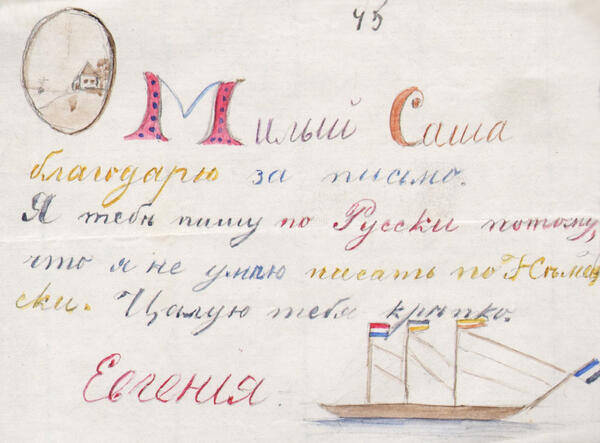 45
Милый Саша
благодарю за письмо.
Я тебѣ пишу по Русски потому,
что я не умѣю писать по Нѣмец
ски. Цалую тебя крѣпко.
Евгенія.